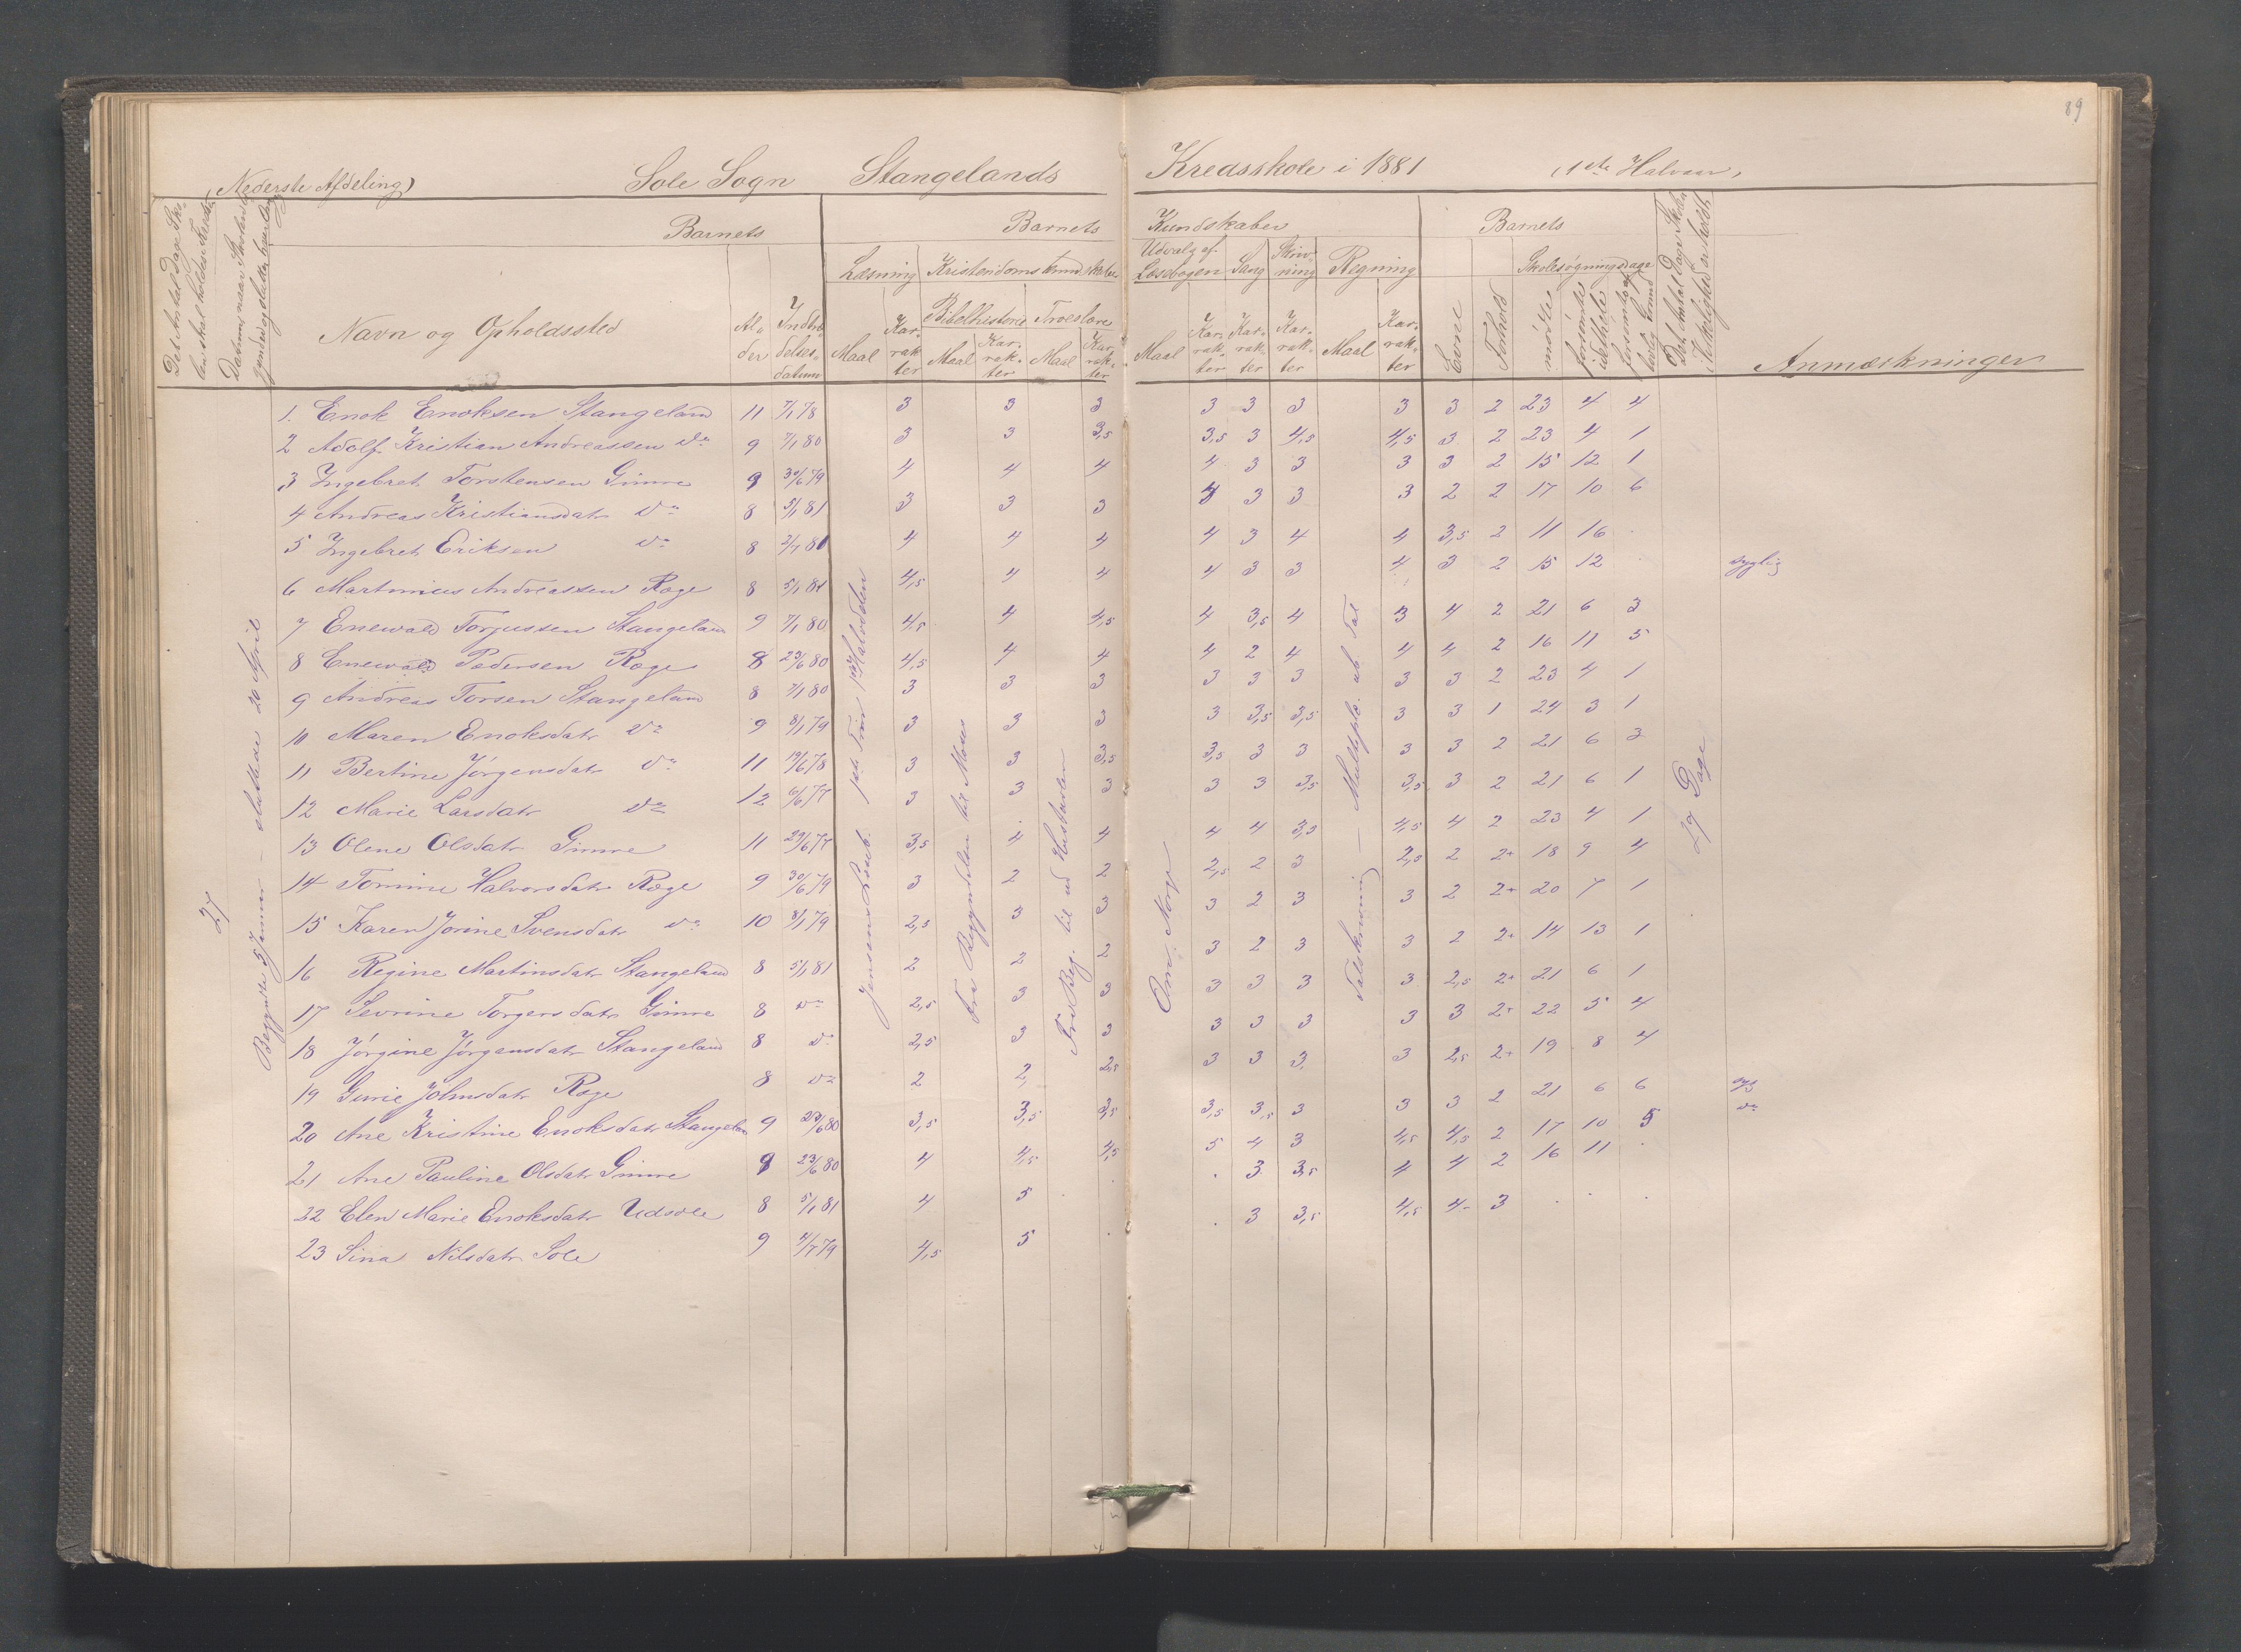 89
(Nederste Afdeling) Sole Sogn Stangelands Kredsskole i 1881 (1ste Halvaar)
Det Antal Dage Skolen skal holdes i Kredsen
Datum, naar Skolen begyndes og slutter hver Gang
Barnets Barnets Kundskaber Barnets
Navn og Opholdssted
Alder
Indtrædelsesdatum
Læsning Kristendomskundskaber
Bibelhistorie Troeslære
Maal Karrakter Maal Karrakter Maal Karrakter
Udvalg af Læsebogen Sang Skrivning Regning
Maal Karrakter Karrakter Karrakter Maal Karrakter
Evne Forhold
Skolesøgningsdage
mødte forsømte idethele
Det Antal Dage Skolen i Virkeligheden er holdt
Anmærkninger
27
Begyndte 5 Januar — sluttede 20 April
Fra Begyndelsen til Moses
Om Norge
Talskrivning — Multiplc. ub. Tal
27 Dage
1. Enok Enoksen Stangeland 11 7/1 78 3 3 3 3 3 3 3 3 2 23 4 4
2 Adolf Kristian Andreassen do 9 7/1 80 3 3 3,5 3,5 3 4,5 4,5 3 2 23 4 1
3 Ingebret Torstensen Gimre 9 30/6 79 4 4 4 4 3 3 3 3 2 15 12 1
4 Andreas Kristiansdatr do 8 5/1 81 3 3 3 3 3 3 3 2 2 17 10 6
5 Ingebret Eriksen do 8 2/7 80 4 4 4 4 3 4 4 3,5 2 11 16 .
6 Martinius Andreassen Røge 8 5/1 81 4,5 4 4 4 3 3 4 3 2 15 12 . syglig
7 Enewald Torjussen Stangeland 9 7/1 80 4,5 4 4,5 4 3,5 4 3 4 2 21 6 3
8 Enewald Pedersen Røge 8 23/6 80 4,5 4 4 4 2 4 4 4 2 16 11 5
9 Andreas Torsen Stangeland 8 7/1 80 3 3 3 3 3 3 3 3 2 23 4 1
10 Maren Enoksdatr do 9 8/1 79 3 3 3 3 3,5 3,5 3 3 1 24 3 1
11 Bertine Jørgensdatr do 11 19/6 78 3 3 3,5 3,5 3 3 3 3 2 21 6 3
12 Marie Larsdatr do 12 6/6 77 3 3 3 3 3 3,5 3,5 3 2 21 6 1
13 Olene Olsdatr Gimre 11 29/6 77 3,5 4 4 4 4 3,5 4,5 4 2 23 4 1
14 Tomine Halvorsdatr Røge 9 30/6 79 3 2 2 2,5 2 3 2,5 2 2+ 18 9 4
15 Karen Jorine Svensdatr do 10 8/1 79 2,5 3 3 3 2 3 3 2 2+ 20 7 1
16 Regine Martinsdatr Stangeland 8 5/1 81 2 2 2 3 2 3 3 2 2+ 14 13 1
17 Sevrine Torgersdatr Gimre 8 do 2,5 3 3 3 3 3 3 2,5 2+ 21 6 1
18 Jørgine Jørgensdatr Stangeland 8 do 2,5 3 3 3 3 3 3 3 2+ 22 5 4
19 Gurie Johnsdatr Røge 8 do 2 2 2,5 3 3 3 3 2,5 2+ 19 8 4
20 Ane Kristine Enoksdatr Stangeland 9 23/6 80 3,5 3,5 3,5 3,5 3,5 3 3 3 2 21 6 6 syg
21 Ane Pauline Olsdatr Gimre 9 23/6 80 4 4,5 4,5 5 4 3 4,5 4,5 2 17 10 5 do
22 Elen Marie Enoksdatr Udsole 8 5/1 81 4 5 . . 3 3,5 4 4 2 16 11 .
23 Sina Nilsdatr Sole 9 4/7 79 4,5 5 . . 3 3,5 4,5 4- 3 . . .